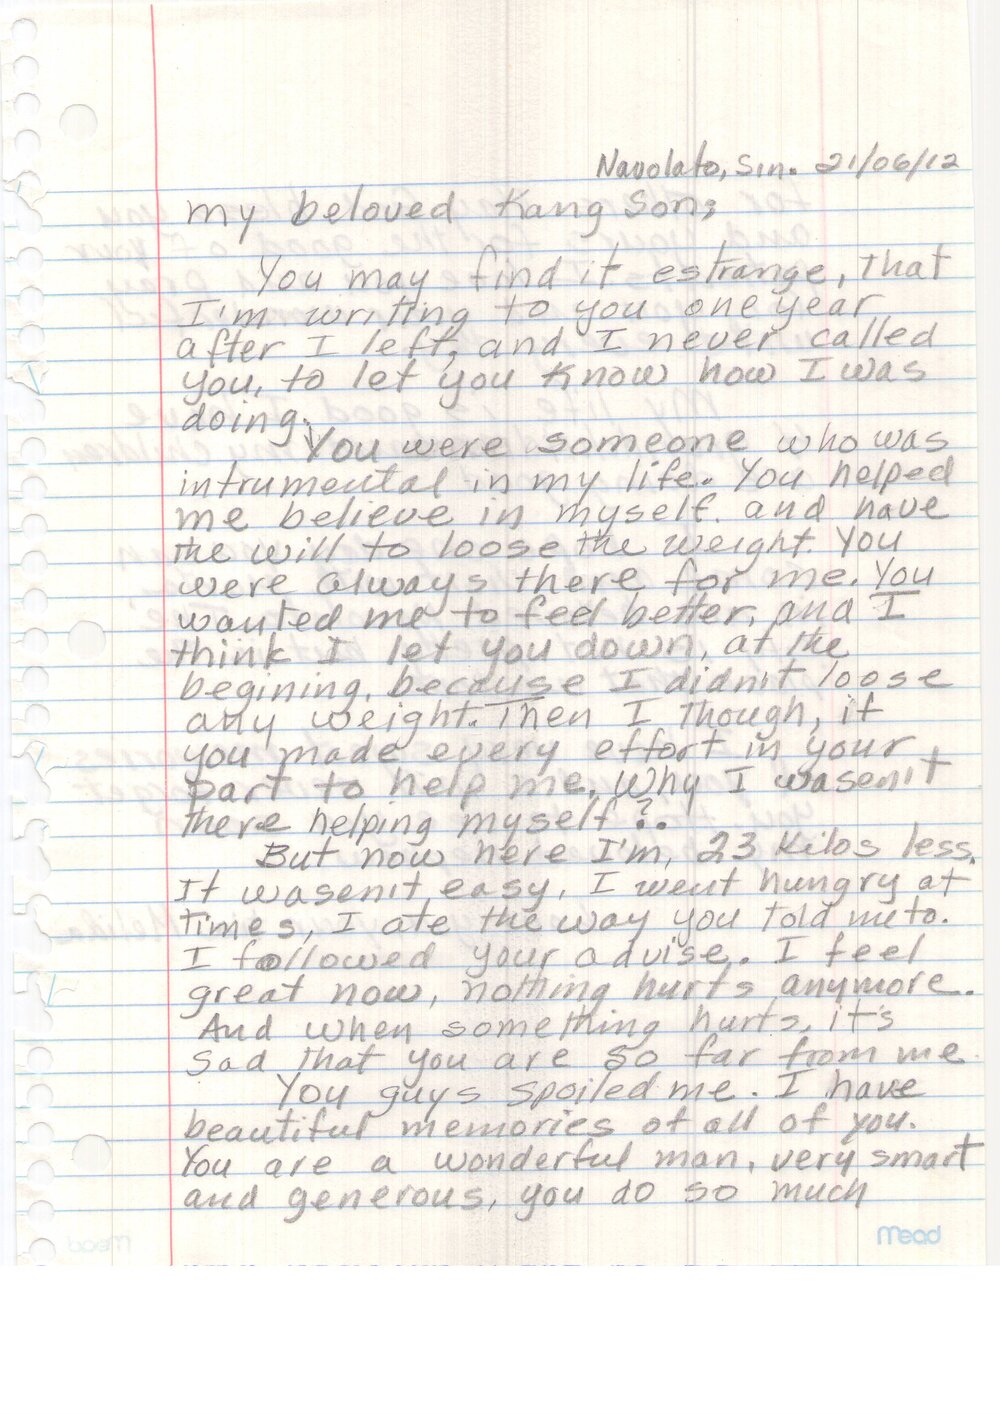 Navolato, Sin. 21/06/12
my beloved Kang Son;
You may find it estrange, that
I'm writing to you one year
after I left, and I never called
you, to let you know how I was
doing.
You were someone who was
intrumental in my life. You helped
me believe in myself. and have
the will to loose the weight. You
were always there for me. You
wanted me to feel better, and I
think I let you down, at the
begining, because I didn't loose
any weight. Then I though, if
you made every effort in your
part to help me, Why I wasen't
there helping myself?.
But now here I'm, 23 Kilos less.
It wasen't easy, I went hungry at
times, I ate the way you told me to.
I followed your advise. I feel
great now, nothing hurts anymore.
And when something hurts, it's
sad that you are so far from me
You guys spoiled me. I have
beautiful memories of all of you.
You are a wonderful man, very smart
and generous, you do so much
Mead